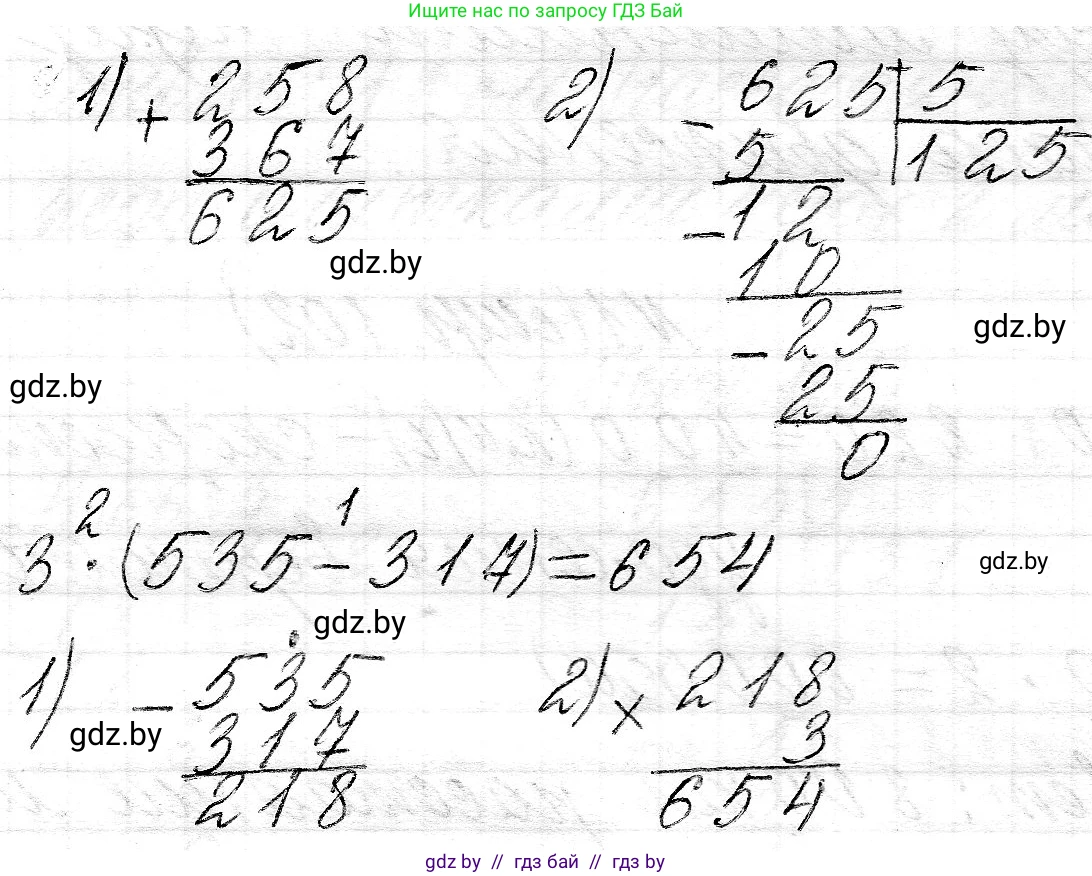 Ищите нас по запросу ГДЗ Бай
1) + 258
367
625
gdz.by
2) - 625 | 5
5 | 125
- 12
10
- 25
25
0
gdz.by
gdz.by
2 1
3 · (535 - 317) = 654
gdz.by
gdz.by
1) - 535
317
218
gdz.by
2) × 218
3
654
gdz.by // гдз бай // гдз by